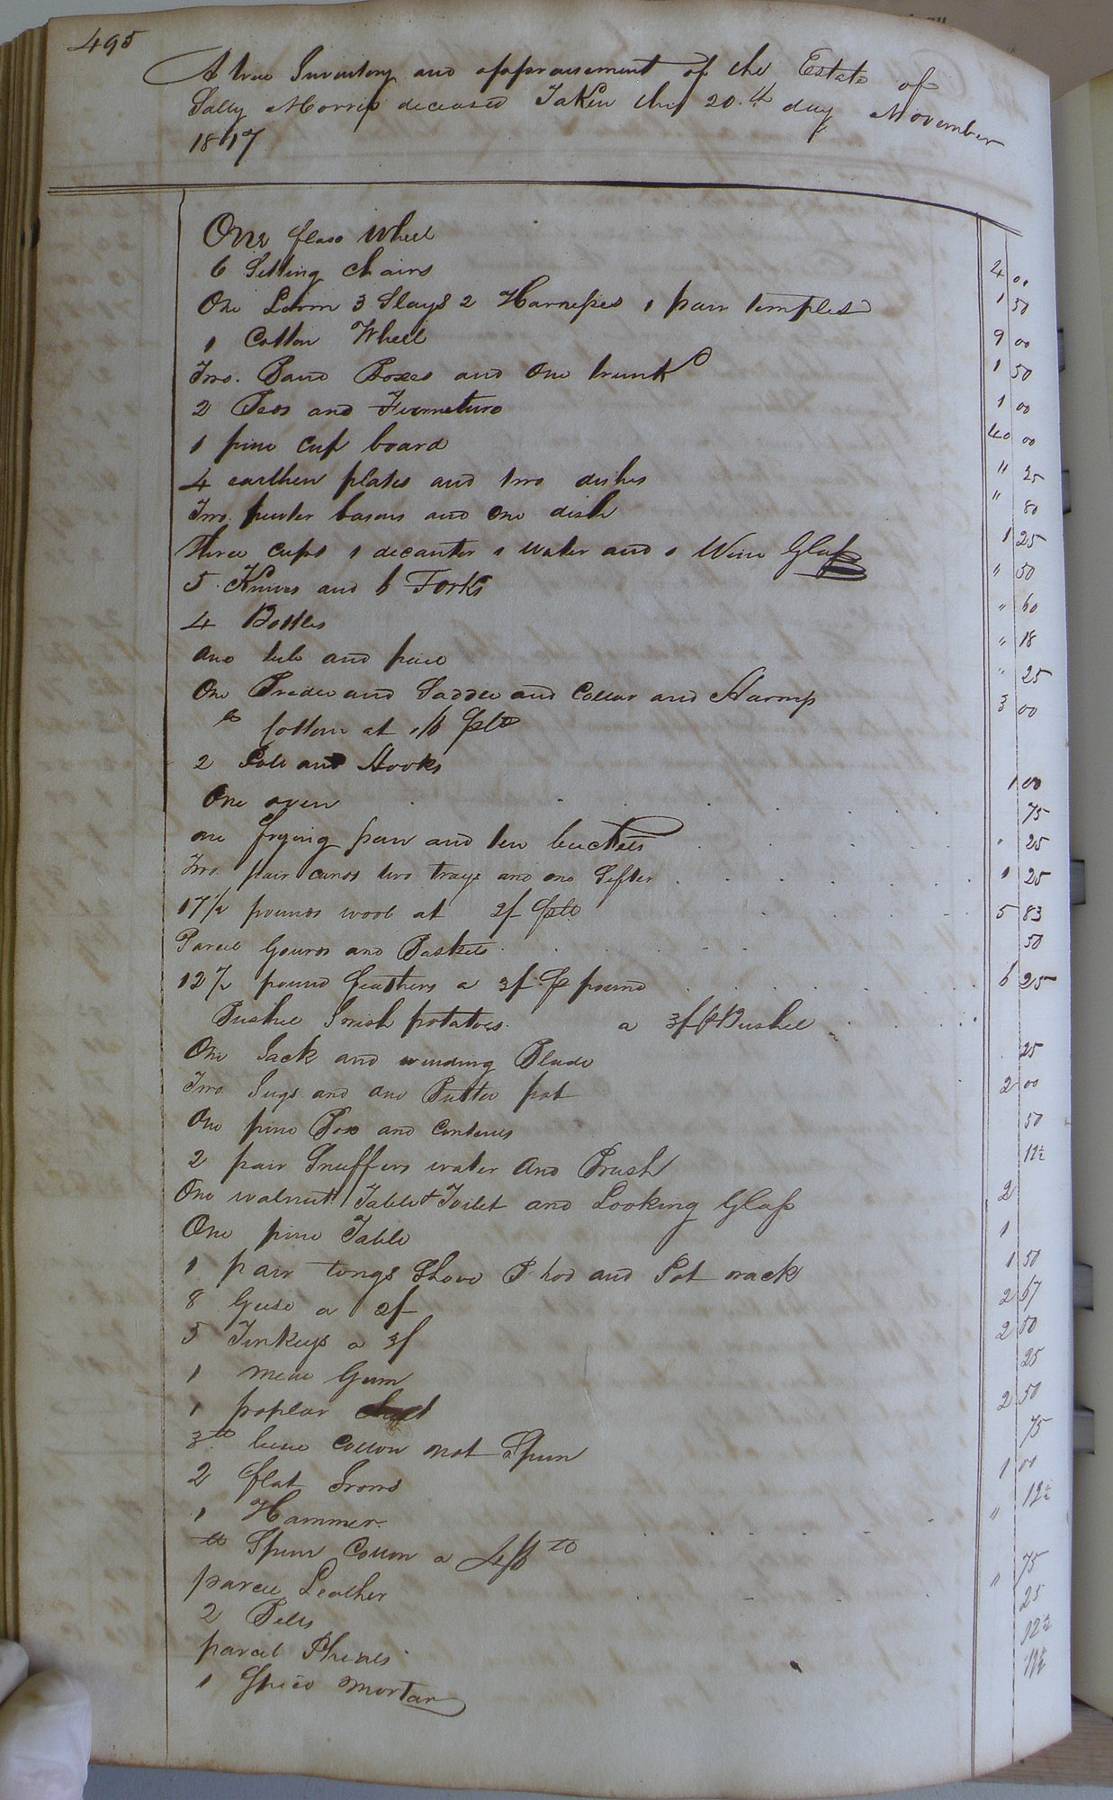 495
A true Inventory and appraisement of the Estate of
Sally Morris deceased Taken this 20.th day November
1817
One flax Wheel 4 00
6 Setting chairs 1 50
One Loom 3 Slays 2 Harnesses 1 pair temples 9 00
1 Cotton Wheel 1 50
Two. Band Boxes and One trunk 1 00
2 Beds and Furneture 40 00
1 pine cup board " 25
4 earthen plates and two dishes " 80
Two. pewter basons and one dish 1 25
Three cups 1 decanter 1 water and 1 Wine Glass " 50
5 Knives and 6 Forks " 60
4 Bottles " 18
one tub and " 25
One Bridle and Saddle and Collar and Harms 3 00
lb Cotton at 1/6 pr lb
2 Pots and Hooks 1 00
One oven 75
one frying pan and tin buckets " 25
Two pair cards two trays and one Sifter 1 25
17½ pounds wool at 2/ pr lb 5 83
Parcel Gourds and Baskets 50
12½ pound feathers a 3/ pr pound 6 25
Bushel Irish potatoes a 3/ pr Bushel
One Jack and winding Blade 25
Two Jugs and one Butter pot 2 00
One pine Box and Contents 50
2 pair Snuffers waiter and Brush 12½
One walnutt Table & Toilet and Looking Glass 2
One pine Table 1
1 pair tongs Shove and Pot rack 1 50
8 Geese a 2/ 2 67
5 Turkeys a 3/ 2 50
1 meal Gum 25
1 poplar Chest 2 50
3 lb blue Cotton not Spun 75
2 flat Irons 1 00
1 Hammer " 12½
lb Spun Cotton a 4/6 lb
parcel Leather " 75
2 Bells 25
parcel 12½
1 Spice mortar